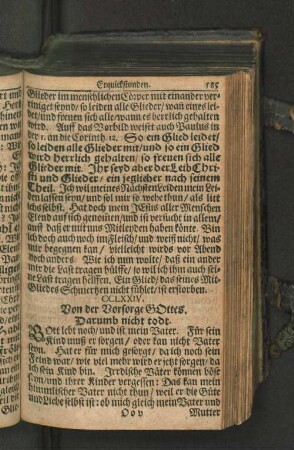 Erquickstunden. 585
Glieder im menschlichen Cörper mit einander ver-
einiget seynd/ so leiden alle Glieder/ wan eines lei-
det/ und freuen sich alle/ wann es herrlich gehalten
wird. Auff das Vorbild weiset auch Paulus in
der 1. an die Corinth. 12. So ein Glied leidet/
so leiden alle Glieder mit/ und so ein Glied
wird herrlich gehalten/ so freuen sich alle
Glieder mit. Ihr seyd aber der Leib Chri-
sti und Glieder/ ein jeglicher nach seinem
Theil. Ich wil meines Nächsten Leiden mein Lei-
den lassen seyn/ und sol mir so wehe thun/ als litt
ichs selbst. Hat doch mein JEsus aller Menschen
Elend auff sich genommen/ und ist versucht in allem/
auff daß er mit uns Mitleyden haben könte. Bin
ich doch auch noch im Fleisch/ und weiß nicht/ was
mir begegnen kan/ vielleicht wirds vor Abend
noch anders. Wie ich nun wolte/ daß ein ander
mir die Last tragen hülffe/ so wil ich ihm auch sei-
ne Last tragen helffen. Ein Glied/ das seines Mit-
Gliedes Schmertzen nicht fühlet/ ist erstorben.
CCLXXIV.
Von der Vorsorge GOttes.
Darumb nicht todt.
GOtt lebt noch/ und ist mein Vater. Für sein
Kind muß er sorgen/ oder kan nicht Vater
seyn. Hater für mich gesorgt/ da ich noch sein
Feind war/ wie viel mehr wird er jetzt sorgen/ da
ich sein Kind bin. Irrdische Väter können böse
seyn/ und ihrer Kinder vergessen: Das kan mein
himmlischer Vater nicht thun/ weil er die Güte
und Liebe selbst ist: ob mich gleich mein Vater und
Oo v Mutter